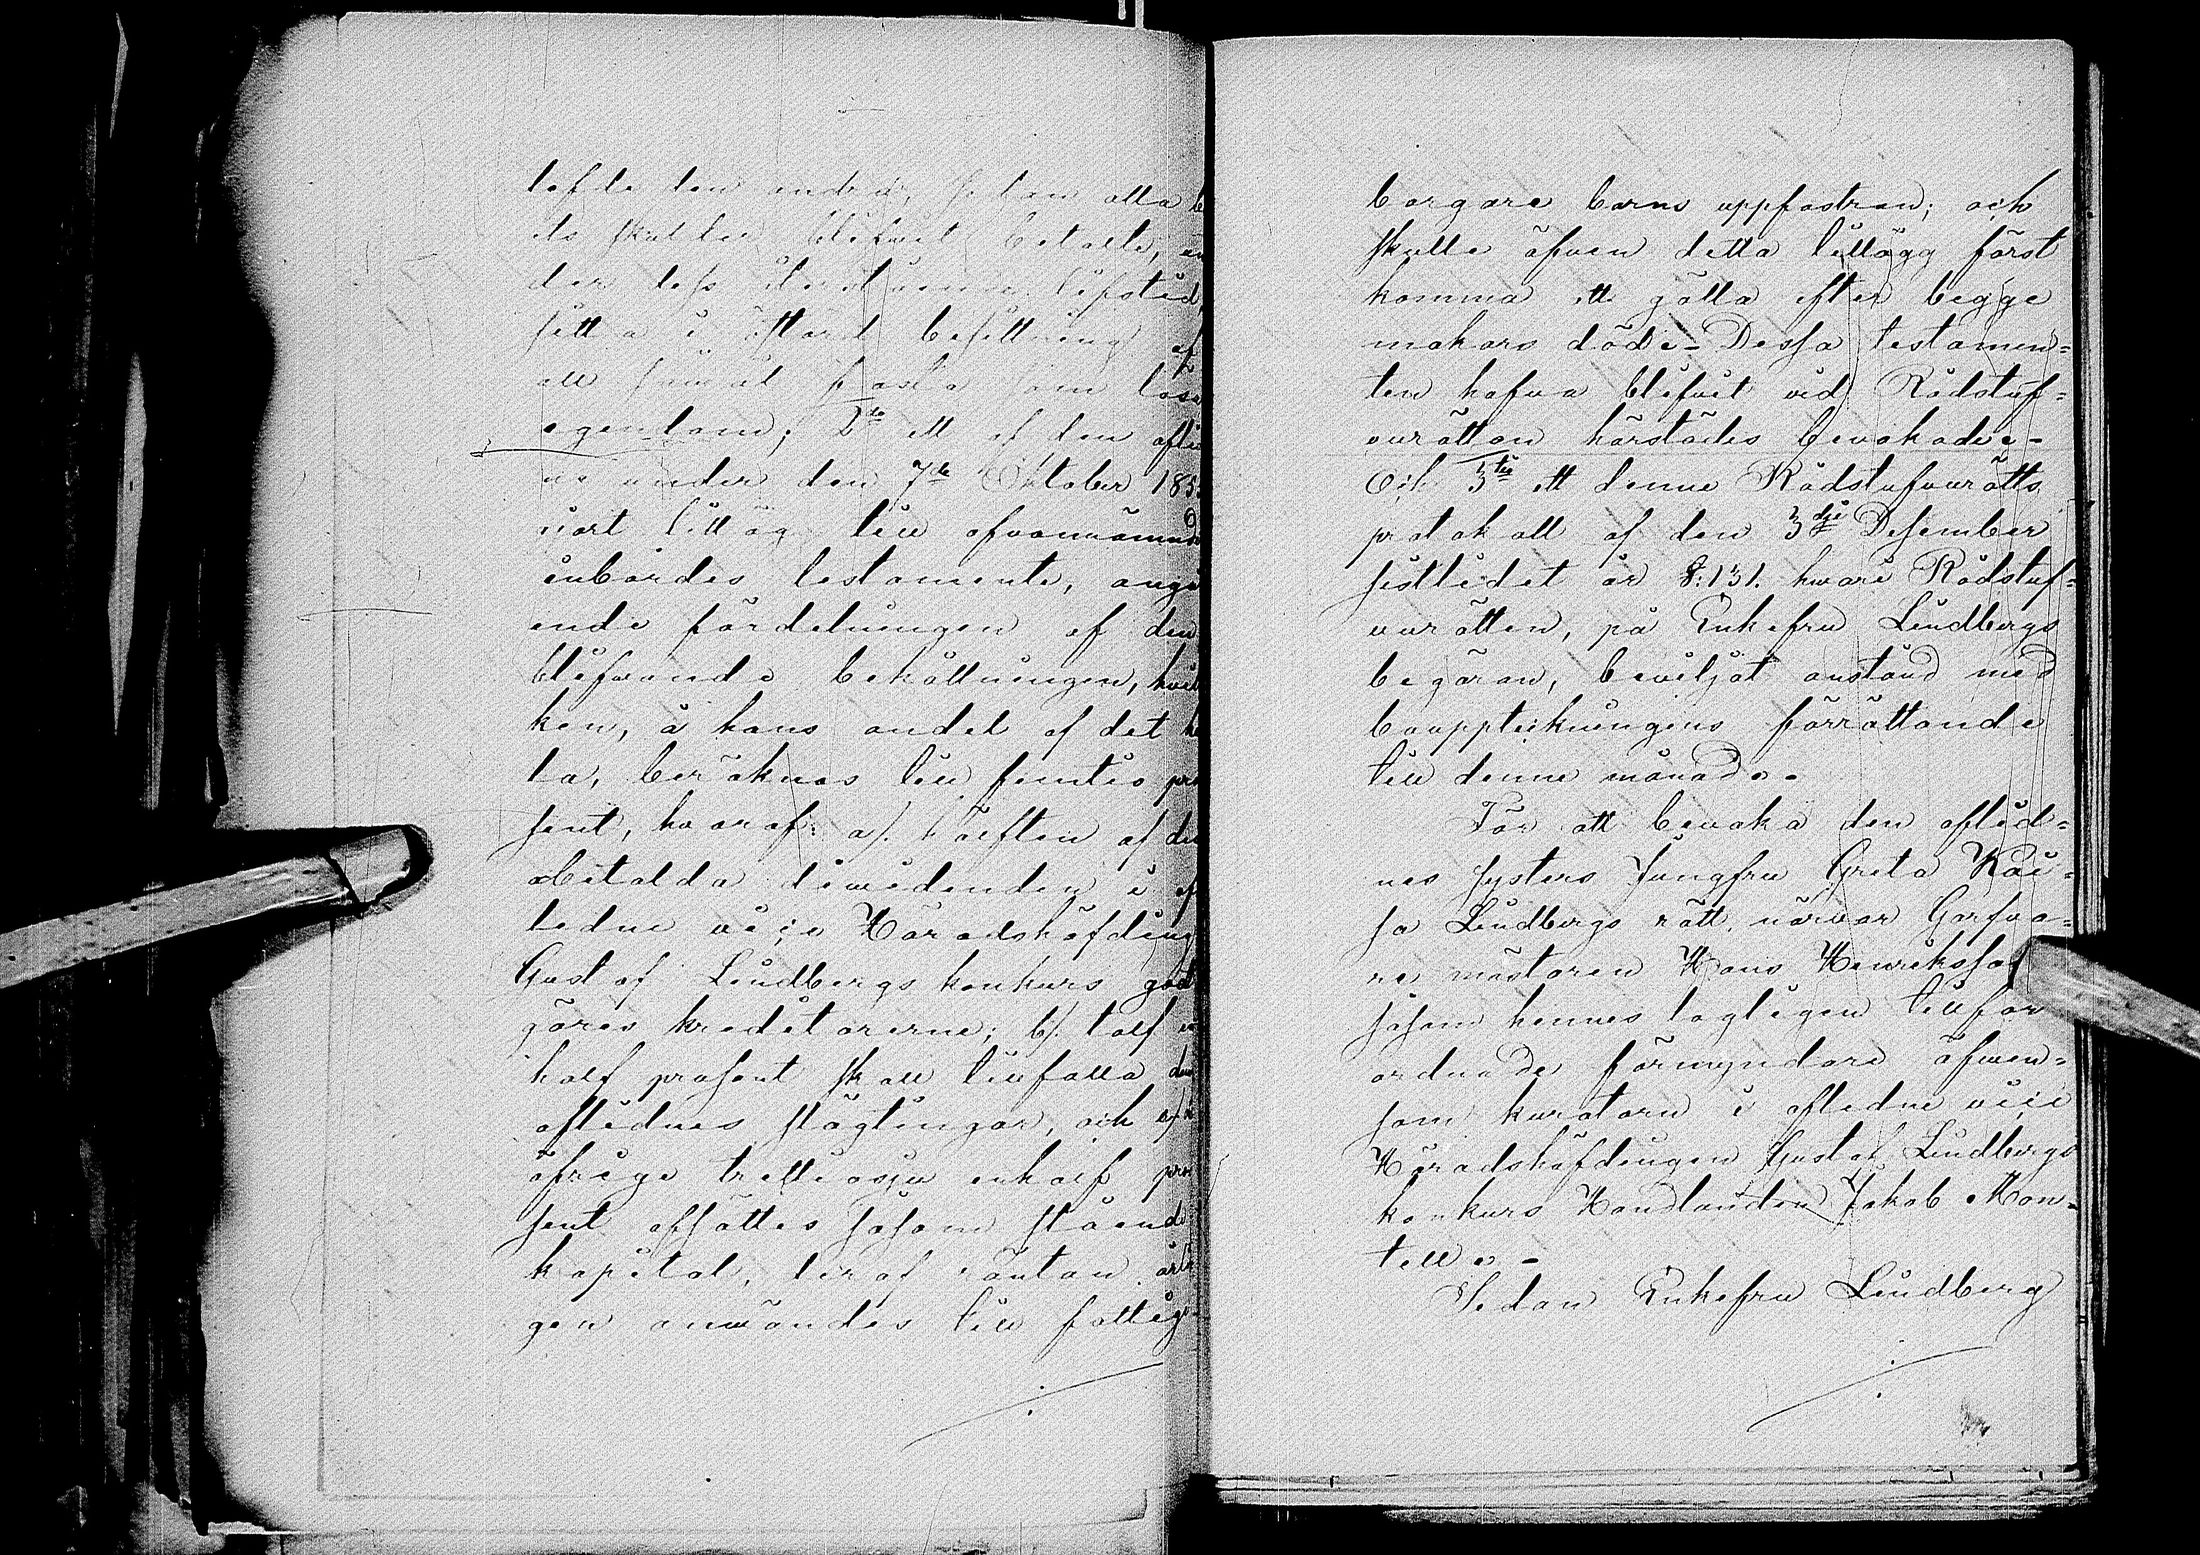 lefde den andra, sedan alla
ds skulder blifvit betalte,
der dess återstående lifstid,
sitta i orård besittning af
all såväl fasta som lösa
egendom; 2do ett af den afli
ne under den 7de Oktober 185
gjort tillägg till ofvannämnde
inbördes testamente, angå
ende fördelningen af den
blifvande behållningen, hvil
ken, å hans andel af det he
la, beräknas till femtio pro
sent, hvaraf: a/. hälften af den
obetalda dividenden i af
ledne vice Häradshöfding
Gustaf Lindbergs konkurs god
göres kreditorerne; b/. tolf
half prosent skall tillfalla den
aflidnes slägtingar, och
öfrige trettiosju enhalf pro
sent afsättes såsom ståend
kapital, deraf räntan årli
gen användes till fattig
borgare barns uppfostran; och
skulle äfven detta tillägg först
komma att gälla efter begge
makars död. Dessa testamen=
ten hafva blifvit vid Rådstuf=
vurätten härstädes bevakade.
Och 3tio ett denne Rådstufvurätts
protokoll af den 3dje Desember
sistlidet år §: 131. hvari Rådstuf=
vurätten, på Enkefru Lindbergs
begäran, beviljat anstånd med
bouppteckningens förrättande
till denne månad. -
För att bevaka den aflid=
nes systers Jungfru Greta Kai=
sa Lindbergs rätt, närvar Garfva=
re mästaren Hans Henriksson
såsom hennes lagligen tillför
ordnade förmyndare äfven=
som kuratorn i aflidne vice
Häradshöfdingen Gustaf Lindbergs
konkurs Handlanden Jakob Mon=
tell. -
Sedan Enkefru Lindberg